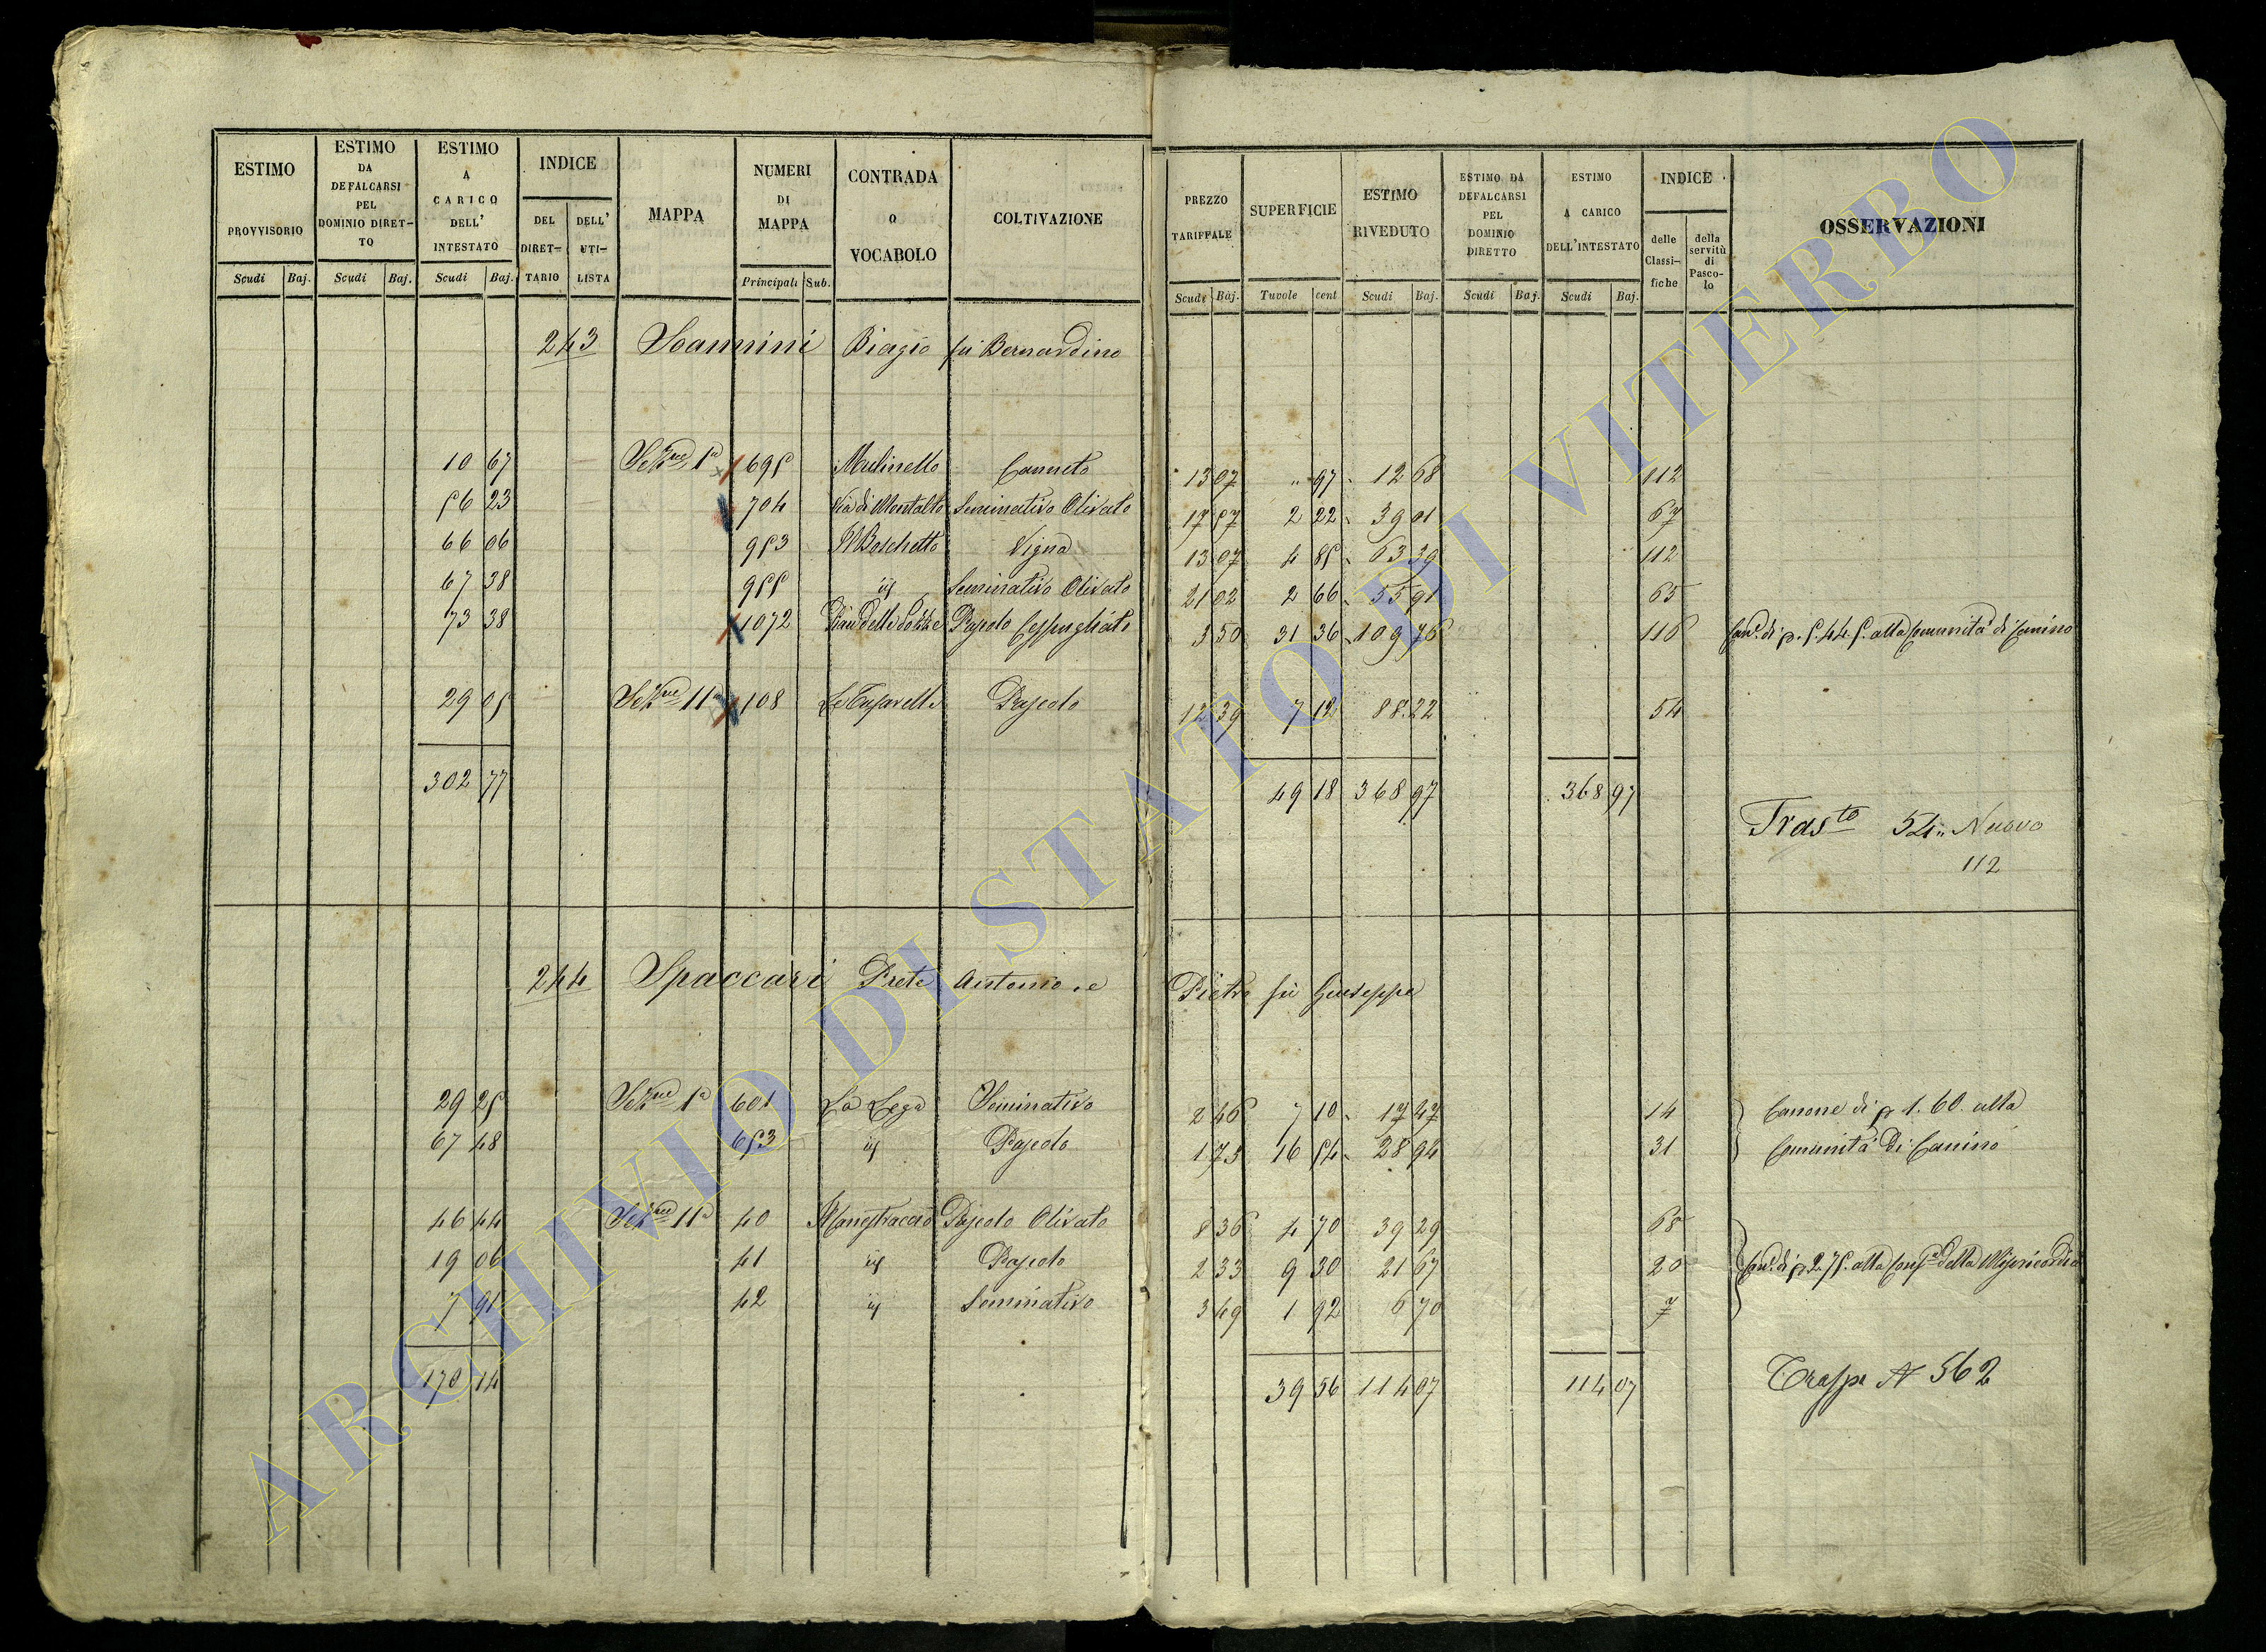 ESTIMO PROVVISORIO Scudi Baj.
ESTIMO DA DEFALCARSI PEL DOMINIO DIRET-TO Scudi Baj.
ESTIMO A CARICO DELL' INTESTATO Scudi Baj.
INDICE DEL DIRET-TARIO DELL' UTI-LISTA
MAPPA
NUMERI DI MAPPA Principali Sub.
CONTRADA O VOCABOLO
COLTIVAZIONE
PREZZO TARIFFALE Scudi Baj.
SUPERFICIE Tavole cent
ESTIMO RIVEDUTO Scudi Baj.
ESTIMO DA DEFALCARSI PEL DOMINIO DIRETTO Scudi Baj.
ESTIMO A CARICO DELL'INTESTATO Scudi Baj.
INDICE delle Classi-fiche della servitù di Pasco-lo
OSSERVAZIONI
243 Soannini Biagio fu Bernardino
10 67 Sezne 1a 695 Mulinello Canneto 13 07 " 97 12 68 112
56 23 704 Via di Montalto Seminativo Olivato 17 57 2 22 39 01 67
66 06 953 Il Boschetto Vigna 13 07 4 85 63 39 112
67 38 955 id Seminativo Olivato 21 02 2 66 55 91 65
73 38 1072 Pascolo Cespugliato 3 50 31 36 109 76 116 Cane di 5.44.5 alla Comunità di Canino
29 05 Sezne 11a 108 Pascolo 12 39 7 12 88 22 54
302 77 49 18 368 97 368 97
Trasto 54 " Nuovo
112
244 Spaccari Prete Antonio, e Pietro fu Giuseppe
29 25 Sezne 1a 601 La Lega Seminativo 2 46 7 10 17 47 14 Canone di 1.60 alla
67 48 653 id Pascolo 1 75 16 54 28 94 31 Comunità di Canino
46 44 Sezne 11a 40 Pascolo Olivato 8 36 4 70 39 29 68
19 06 41 id Pascolo 2 33 9 30 21 67 20 Cane di 2.75 alla Confa della Misericordia
7 91 42 id Seminativo 3 49 1 92 6 70 7
170 14 39 56 114 07 114 07
Traspe N 562
ARCHIVIO DI STATO DI VITERBO